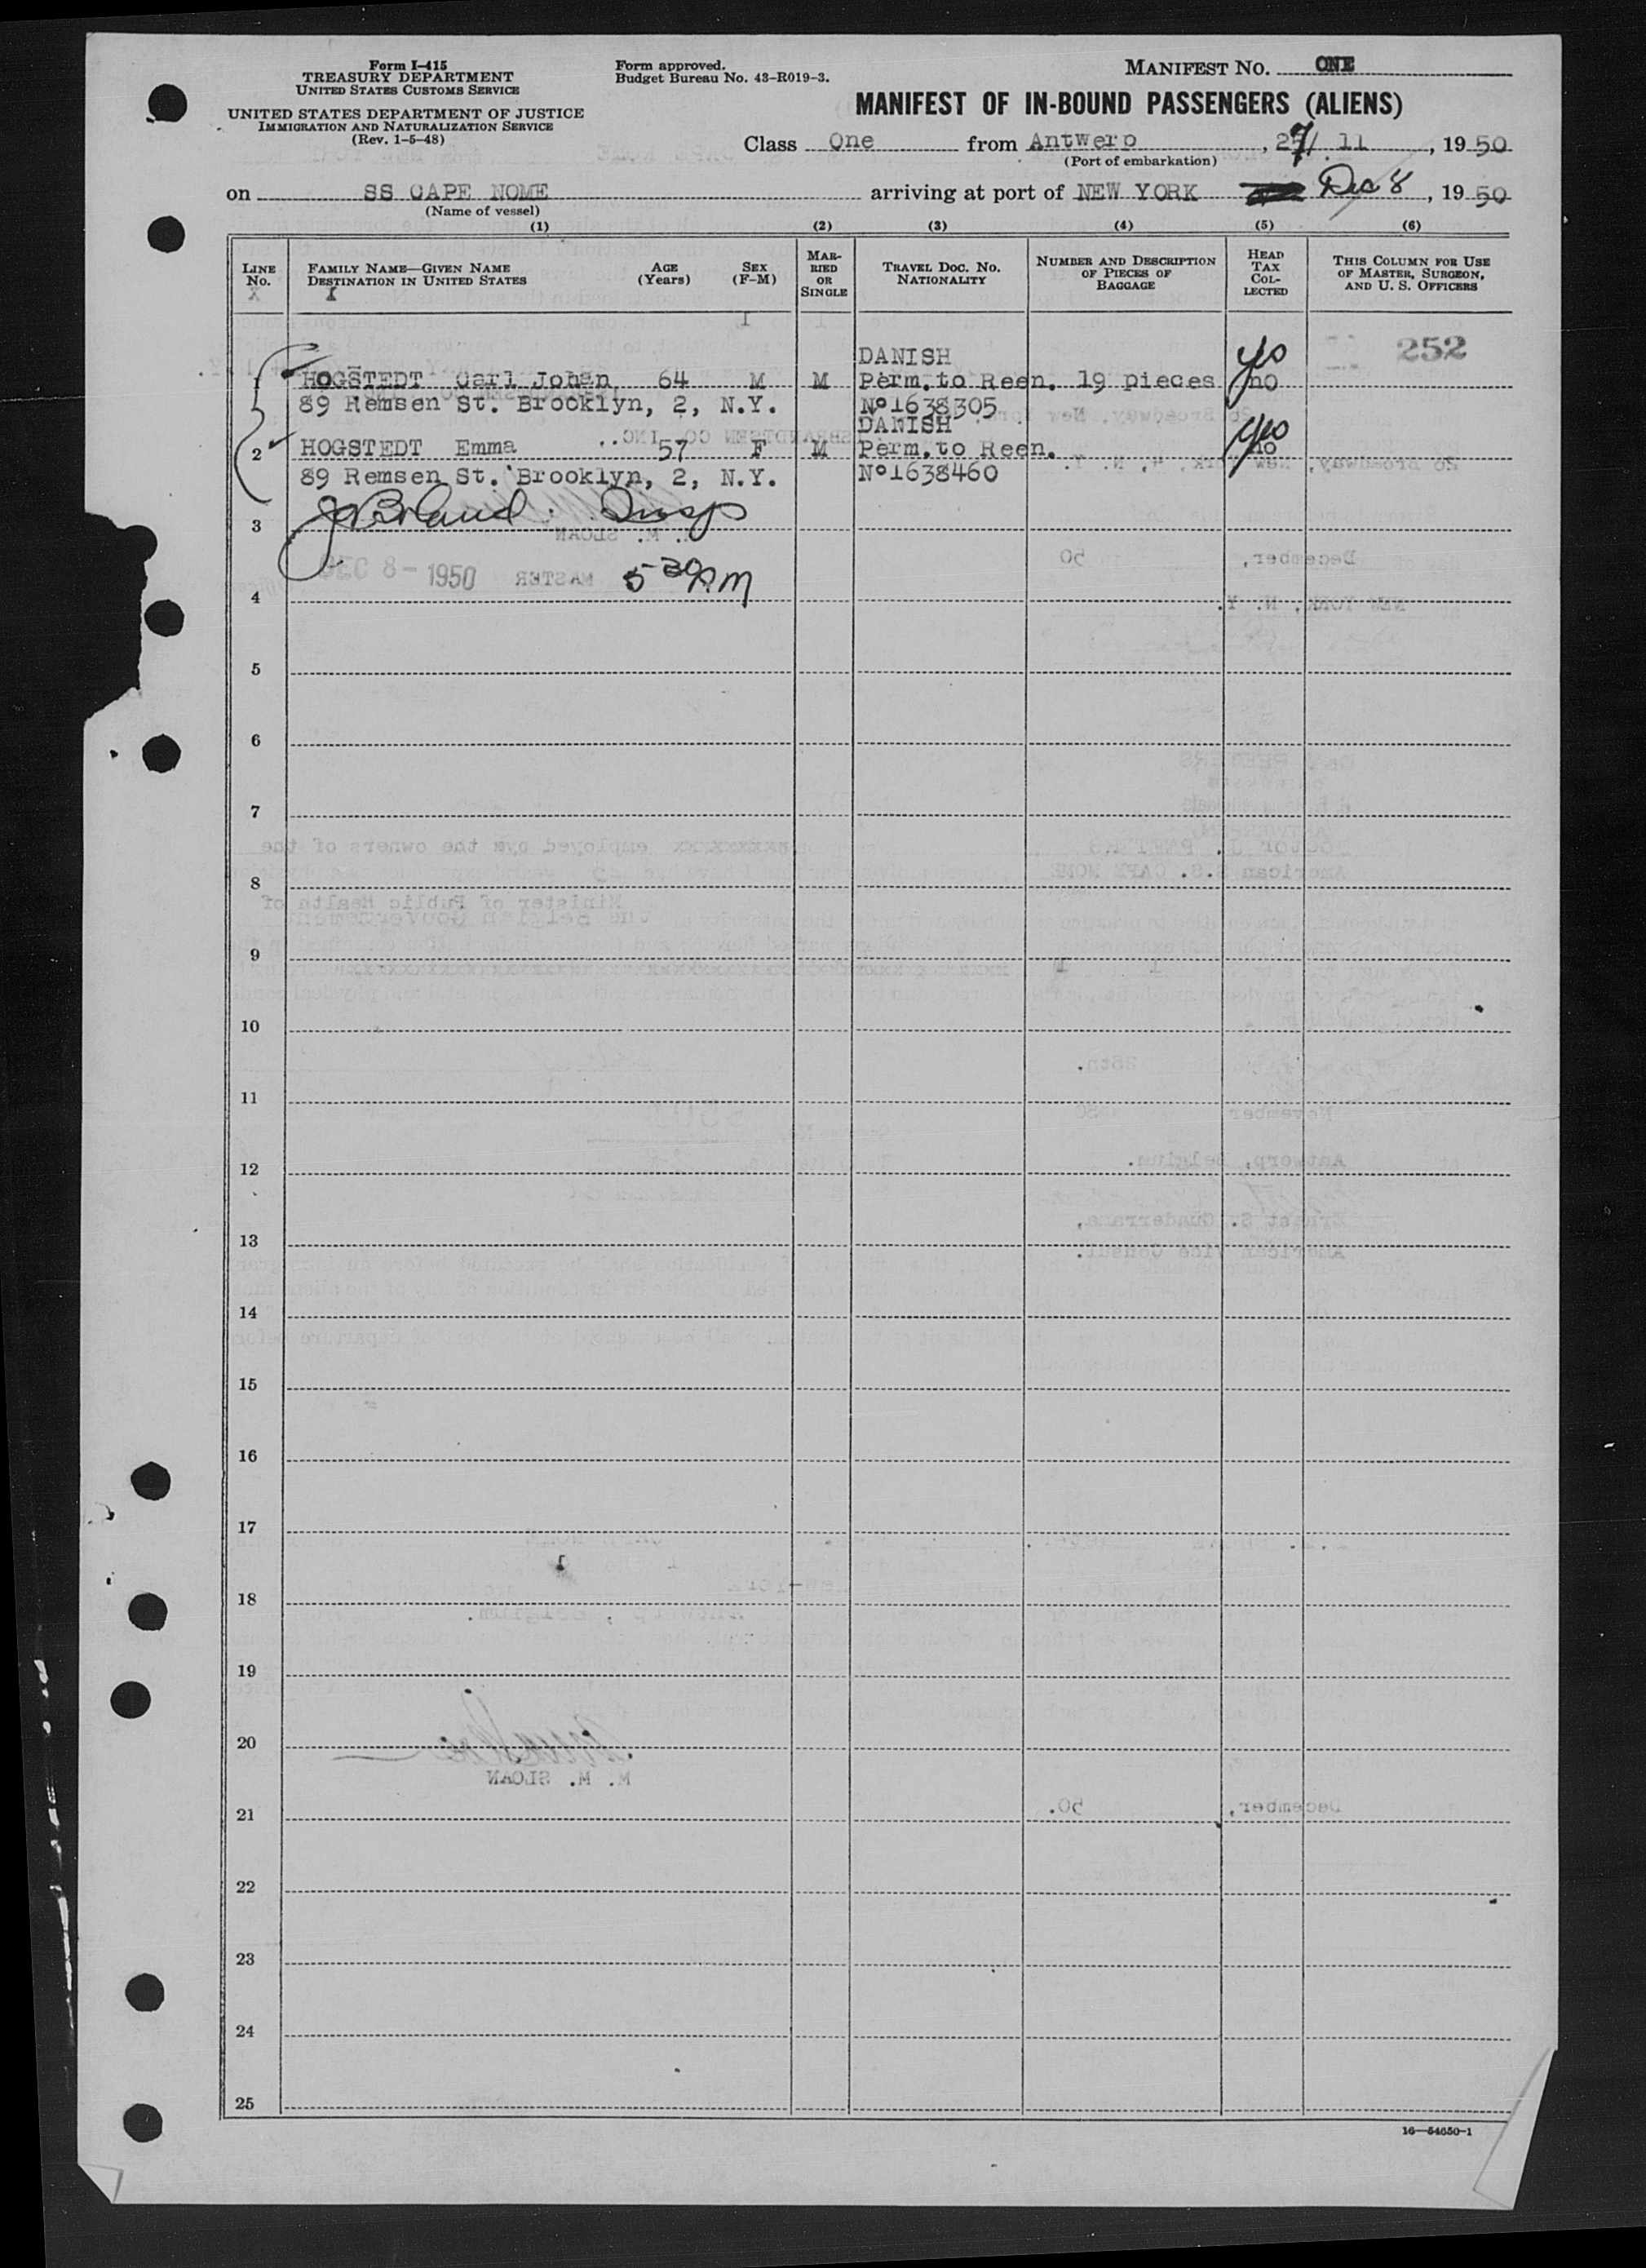 Form I-415
TREASURY DEPARTMENT
UNITED STATES CUSTOMS SERVICE
UNITED STATES DEPARTMENT OF JUSTICE
IMMIGRATION AND NATURALIZATION SERVICE
(Rev. 1-5-48)
Form approved.
Budget Bureau No. 43-R019-3.
MANIFEST NO. ONE
MANIFEST OF IN-BOUND PASSENGERS (ALIENS)
Class One from Antwerp, 27/ 11, 19 50
(Port of embarkation)
on SS CAPE NOME arriving at port of NEW YORK Dec 8, 19 50
(Name of vessel)
(1) (2) (3) (4) (5) (6)
LINE NO. FAMILY NAME—GIVEN NAME DESTINATION IN UNITED STATES AGE (Years) SEX (F-M) MARRIED OR SINGLE TRAVEL DOC. NO. NATIONALITY NUMBER AND DESCRIPTION OF PIECES OF BAGGAGE HEAD TAX COLLECTED THIS COLUMN FOR USE OF MASTER, SURGEON, AND U. S. OFFICERS
X X
DANISH yes 252
1 HOGSTEDT Carl Johan 64 M M Perm.to Reen. 19 pieces no
89 Remsen St. Brooklyn, 2, N.Y. No 1638305
DANISH yes
2 HOGSTEDT Emma 57 F M Perm.to Reen. no
89 Remsen St. Brooklyn, 2, N.Y. No 1638460
3 Insp
DEC 8- 1950 5 30 PM
4
5
6
7
8
9
10
11
12
13
14
15
16
17
18
19
20
21
22
23
24
25
16—54650-1